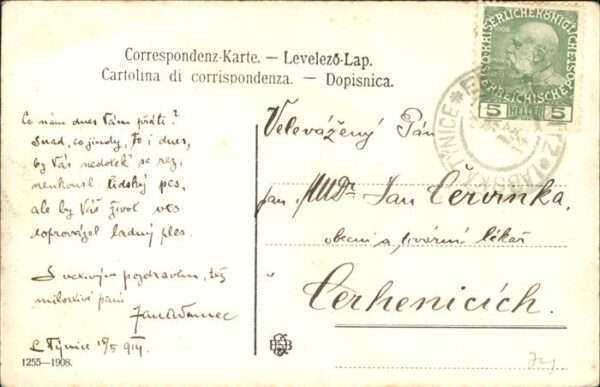 Correspondenz-Karte. — Levelező-Lap.
Cartolina di corrispondenza. — Dopisnica.
KAISERLICHE KÖNIGLICHE ÖSTERREICHISCHE
5 HELLER 5
TÝNICE * LABSKÁ
Co nám dnes Vám přáti?
Snad, co jindy, to i dnes,
by Vás nedotek' se rez,
neukousl lidský pes,
ale by Váš život ves
doprovázel ladný ples.
S uctivým pozdravem, též
milostivé paní
Jan
L. Týnice 15/5 914
1255—1908.
Velevážený Pán
pan MUDr Jan Červinka,
obecní a lékař
Cerhenicích.